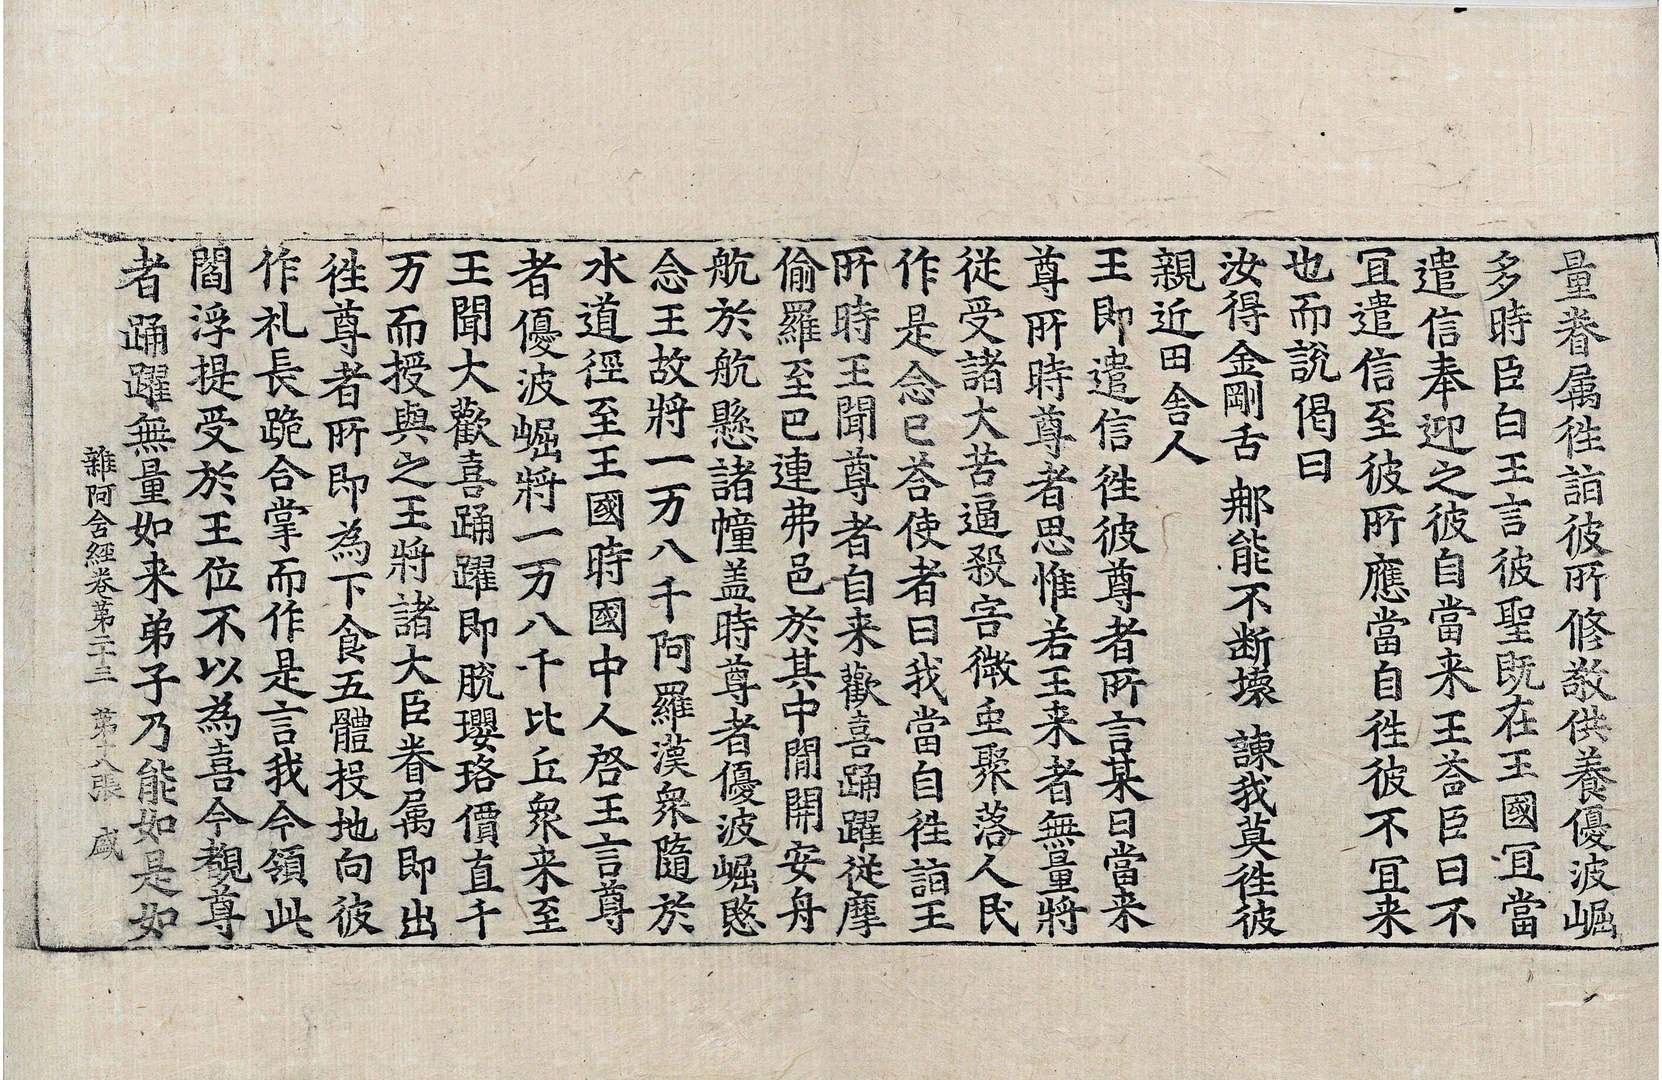 量眷属徃詣彼所修敬供養優波崛
多時臣白王言彼聖既在王國冝當
遣信奉迎之彼自當来王荅臣曰不
冝遣信至彼所應當自徃彼不冝来
也而說偈曰
汝得金剛舌 那能不断壞 諫我莫徃彼
親近田舍人
王即遣信徃彼尊者所言某日當来
尊所時尊者思惟若王来者無量將
從受諸大苦逼殺害微虫聚落人民
作是念已荅使者曰我當自徃詣王
所時王聞尊者自来歡喜踊躍從摩
偷羅至巴連弗邑於其中閒開安舟
航於航懸諸幢盖時尊者優波崛愍
念王故將一万八千阿羅漢衆隨於
水道徑至王國時國中人啓王言尊
者優波崛將一万八千比丘衆来至
王聞大歡喜踊躍即脫瓔珞價直千
万而授與之王將諸大臣眷属即出
徃尊者所即為下食五體投地向彼
作礼長跪合掌而作是言我今領此
閻浮提受於王位不以為喜今覩尊
者踊躍無量如来弟子乃能如是如
雜阿含經卷第二十三 第十八張 盛